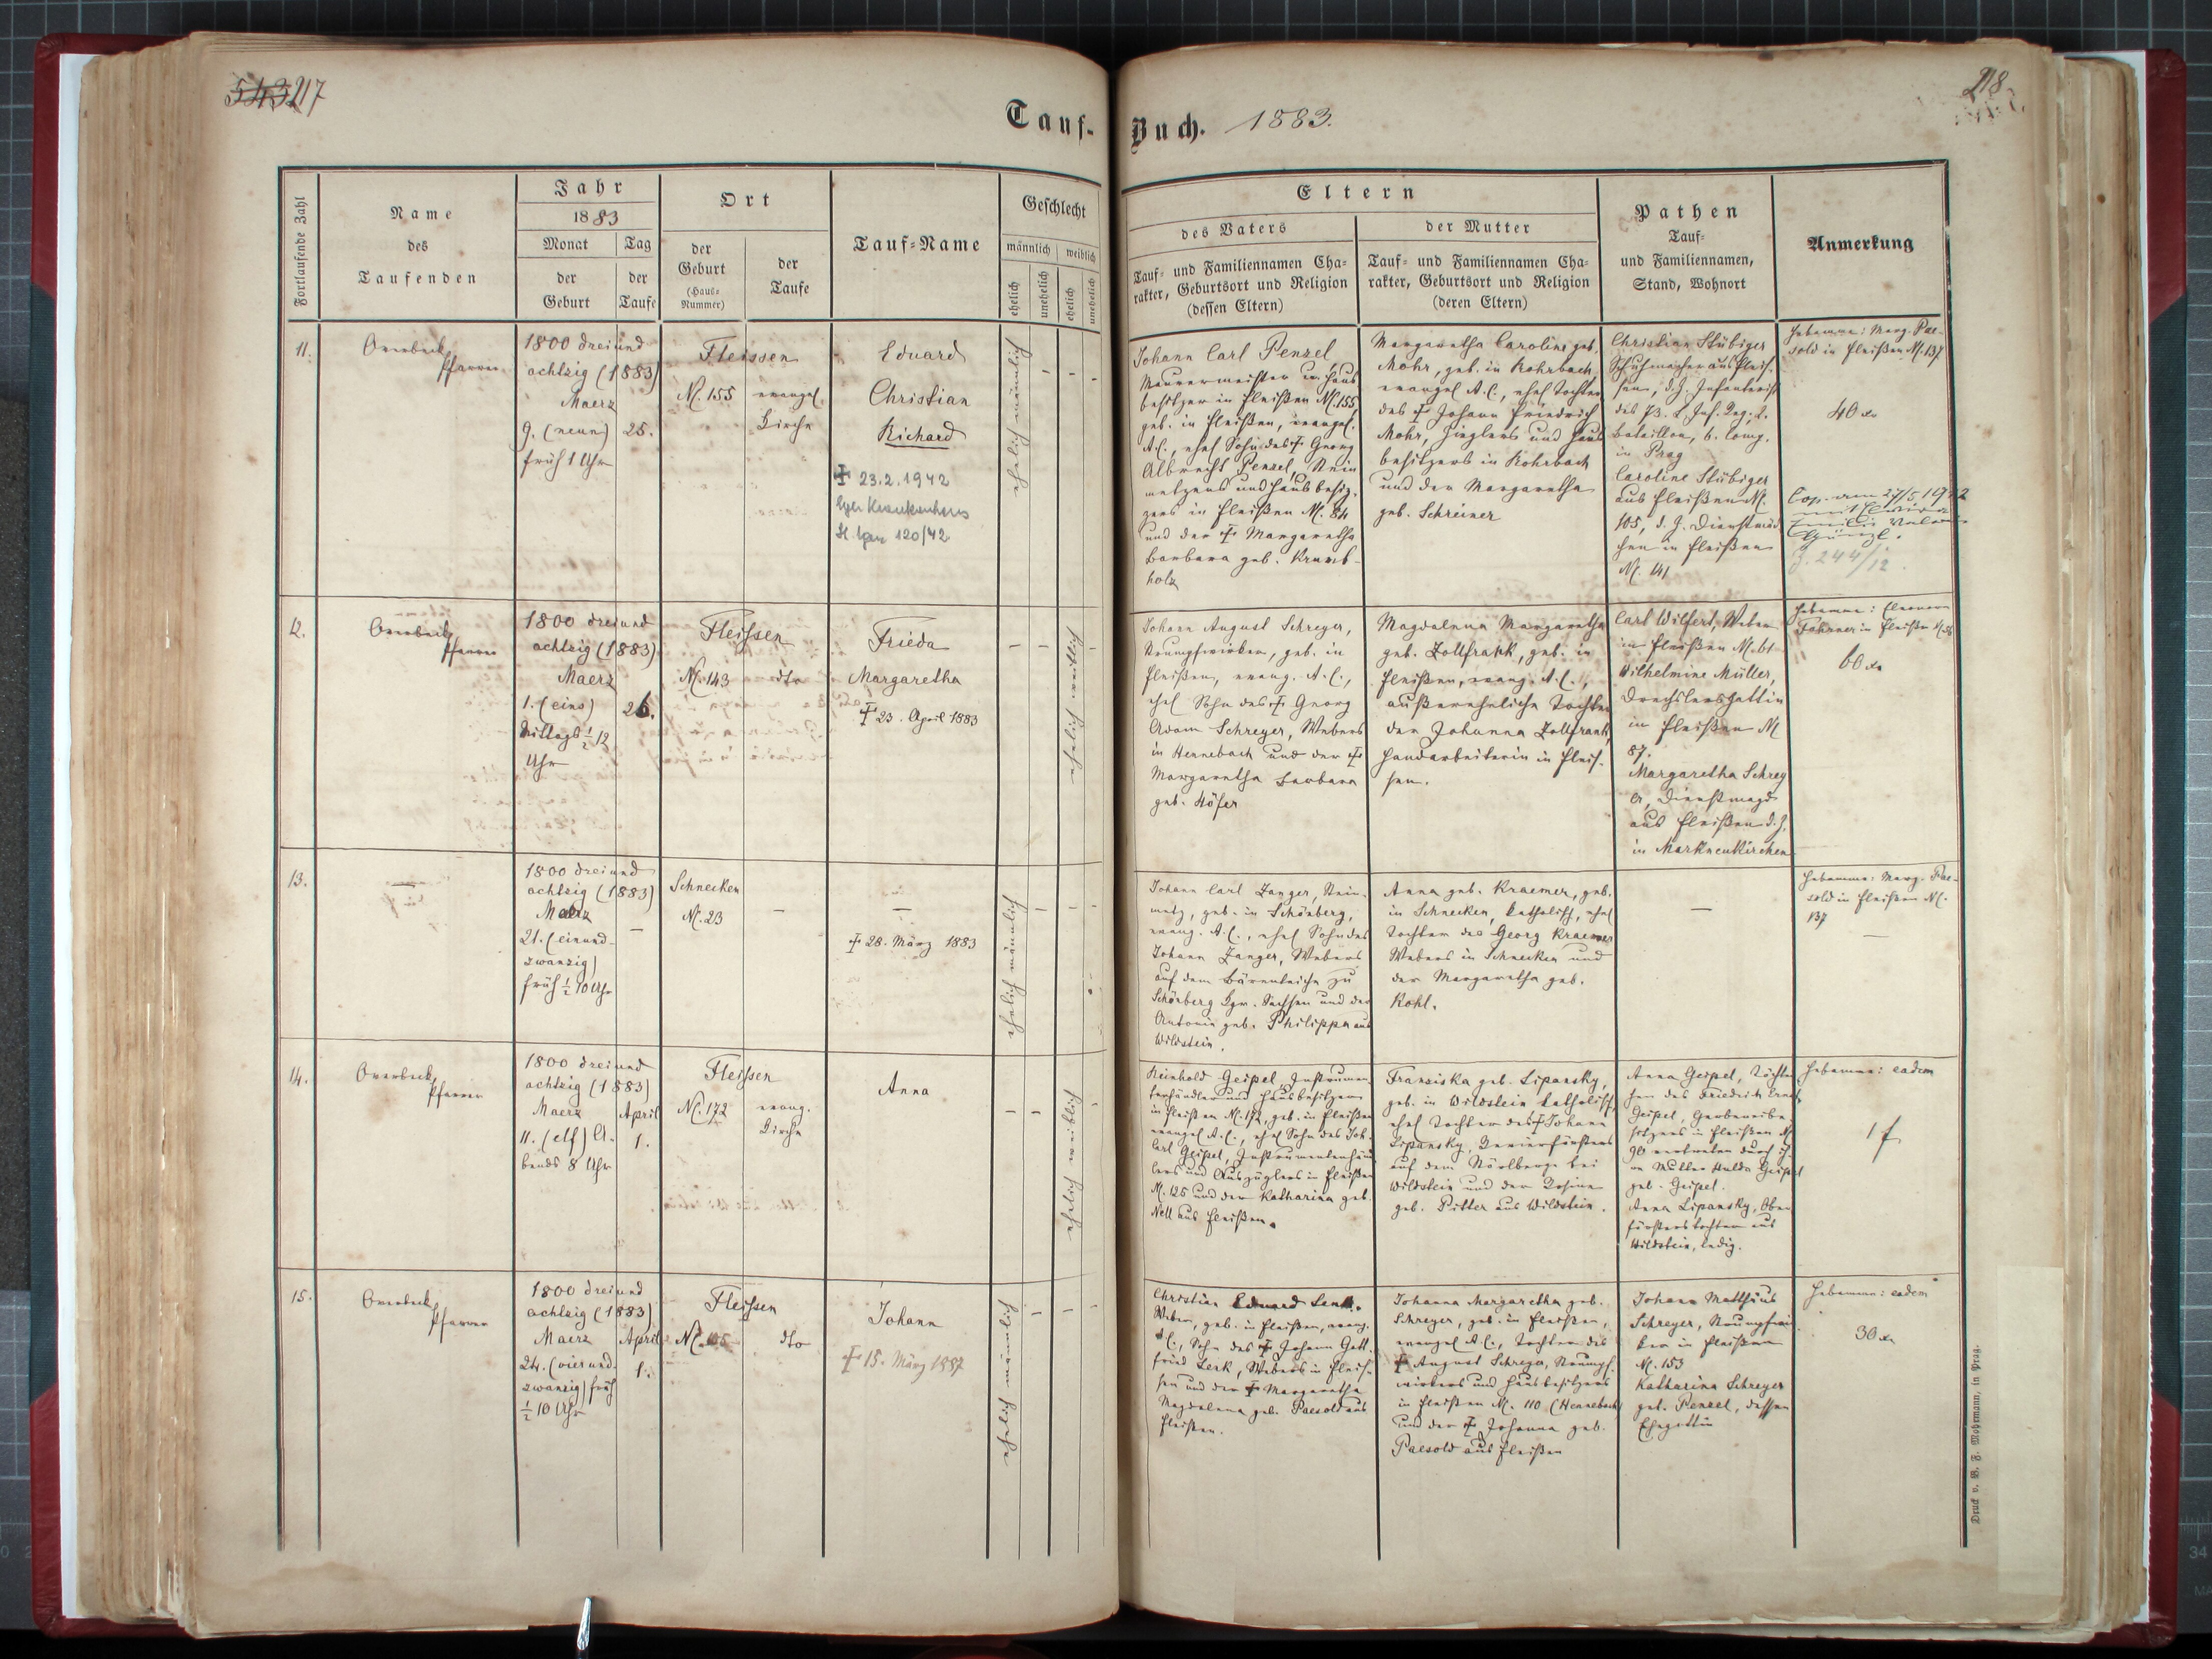 543 217
218
Tauf-Buch. 1883.
Fortlaufende Zahl
Name
des
Taufenden
Jahr
1883
Monat
der
Geburt
Tag
der
Taufe
Ort
der
Geburt
(Haus-
Nummer)
der
Taufe
Tauf-Name
Geschlecht
männlich
weiblich
ehelich
unehelich
ehelich
unehelich
Eltern
des Vaters
Tauf- und Familiennamen Cha-
rakter, Geburtsort und Religion
(dessen Eltern)
der Mutter
Tauf- und Familiennamen Cha-
rakter, Geburtsort und Religion
(deren Eltern)
Pathen
Tauf-
und Familiennamen,
Stand, Wohnort
Anmerkung
11.
Overbeck
Pfarrer
1800 dreiund
achtzig (1883)
Maerz
9. (neun)
früh 1 Uhr
25.
Fleissen
N. 155
evangel.
Kirche
Eduard
Christian
Richard
† 23.2.1942
Eger Krankenhaus
120/42
ehelich männlich
Johann Carl Penzel
Maurermeister u. Haus
besitzer in Fleißen N. 155,
geb. in Fleißen, evangel.
A.C., ehel Sohn des † Georg
Albrecht Penzel, Stein
metzens und Hausbesit-
zers in Fleißen N. 84
und der † Margaretha
Barbara geb. Krumb-
holz
Margaretha Caroline geb.
Mohr, geb. in Rohrbach
evangel A.C., ehel Tochter
des † Johann Friedrich
Mohr, Zieglers und Haus
besitzers in Rohrbach
und der Margaretha
geb. Schreiner
Christian Stübiger
Schuhmacher aus Fleis-
sen, d.Z. Infanterist
des 73. L. Inf. Reg. 2.
Bataillon, 6. Comp.
in Prag
Caroline Stübiger
aus Fleißen N.
105, d. Z. Dienstmäd
chen in Fleißen
N. 141
Hebamme: Marg. Pae-
sold in Fleißen N. 137
40 x
Cop. am 27/5 1912
mit
Emilie
Z. 244/12.
12.
Overbeck
Pfarrer
1800 dreiund
achtzig (1883)
Maerz
1. (eins)
Mittags ½ 12
Uhr
26.
Fleissen
N. 143
dto
Frieda
Margaretha
† 23. April 1883
ehelich weiblich
Johann August Schreyer,
Strumpfwirker, geb. in
Fleißen, evang. A.C.,
ehel Sohn des † Georg
Adam Schreyer, Webers
in Hennebach und der †
Margaretha Barbara
geb. Höfer
Magdalena Margaretha
geb. Zollfrank, geb. in
Fleißen, evang. A.C.,
außereheliche Tochter
der Johanna Zollfrank,
Handarbeiterin in Fleis-
sen.
Carl Wilfert, Weber
in Fleißen N. 61
Wilhelmine Müller,
Drechslersgattin
in Fleißen N
87.
Margaretha Schrey
er, Dienstmagd
aus Fleißen d.Z.
in Markneukirchen
Hebamme: Eleonora
Fahrner in Fleißen
60 x
13.
1800 dreiund
achtzig (1883)
Maerz
21. (einund-
zwanzig)
früh ½ 10 Uhr
Schnecken
N. 23
† 28. März 1883
ehelich männlich
Johann Carl Zanger, Stein-
metz, geb. in Schönberg,
evang. A.C., ehel Sohn des
Johann Zanger, Webers
auf dem Bärenteiche zu
Schönberg Kgr. Sachsen und der
Antonia geb. Philipp aus
Wildstein.
Anna geb. Kraemer, geb.
in Schnecken, katholisch, ehel
Tochter des Georg Kraemer
Webers in Schnecken und
der Margaretha geb.
Kohl.
Hebamme: Marg. Pae-
sold in Fleißen N.
137
14.
Overbeck
Pfarrer
1800 dreiund
achtzig (1883)
Maerz
11. (elf) A-
bends 8 Uhr
April
1.
Fleissen
N. 172
evang.
Kirche
Anna
ehelich weiblich
Reinhold Geipel, Instrumen
tenhändler und Hausbesitzer
in Fleißen N. 172, geb. in Fleißen
evangel A.C., ehel Sohn des Joh.
Carl Geipel, Instrumentenhänd
lers und Auszüglers in Fleißen
N. 125 und der Katharina geb.
Nell aus Fleißen.
Franziska geb. Lipansky,
geb. in Wildstein katholisch,
ehel Tochter des † Johann
Lipansky, Revierförsters
auf dem Nörlberge bei
Wildstein und der Rosina
geb. Pitter aus Wildstein.
Anna Geipel, Töchter
chen des Friedrich Ernst
Geipel, Gerbereibe
sitzers in Fleißen N
90 vertreten durch ih
re Mutter Hulda Geipel
geb. Geipel.
Anna Lipansky, Ober
försterstochter aus
Wildstein, ledig.
Hebamme: eadem
1 f
15.
Overbeck
Pfarrer
1800 dreiund
achtzig (1883)
Maerz
24. (vierund-
zwanzig) früh
½ 10 Uhr
April
1.
Fleissen
dto
Johann
† 15. März 1887
ehelich männlich
Christian Eduard Lenk.
Weber, geb. in Fleißen, evang.
A.C., Sohn des † Johann Gott-
fried Lenk, Webers in Fleis-
sen und der † Margaretha
Magdalena geb. Paesold aus
Fleißen.
Johanna Margaretha geb.
Schreyer, geb. in Fleißen,
evangel A.C., Tochter des
† August Schreyer, Strumpf-
wirkers und Hausbesitzers
in Fleißen N. 110 (Hennebach)
und der † Johanna geb.
Paesold aus Fleißen
Johann Matthäus
Schreyer, Strumpfwir-
ker in Fleißen
N. 153
Katharina Schreyer
geb. Penzel, dessen
Ehegattin
Hebamme: eadem
30 x
Druck v. B. F. Mohrmann, in Prag.